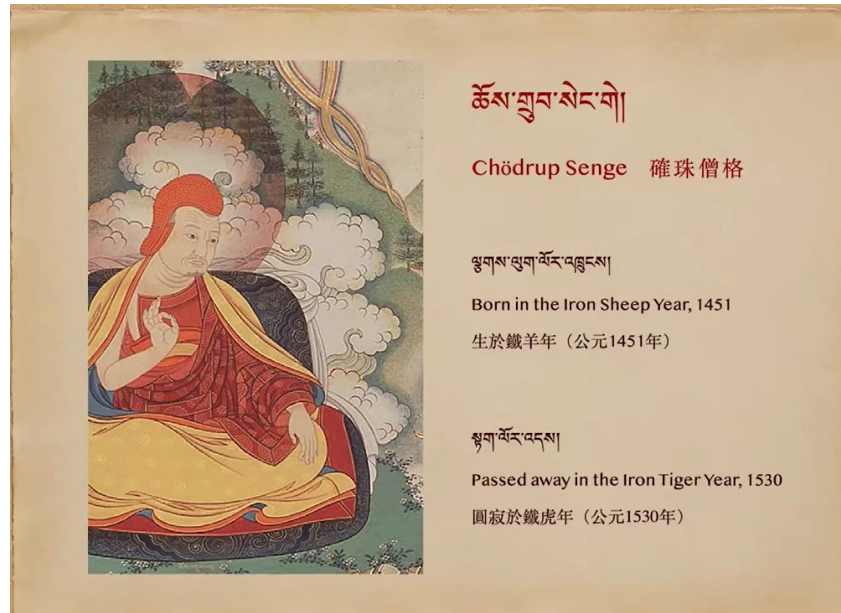 ཆོས་གྲུབ་སེང་གེ།
Chödrup Senge 確珠僧格
ལྕགས་ལུག་ལོར་འཁྲུངས།
Born in the Iron Sheep Year, 1451
生於鐵羊年（公元1451年）
སྟག་ལོར་འདས།
Passed away in the Iron Tiger Year, 1530
圓寂於鐵虎年（公元1530年）